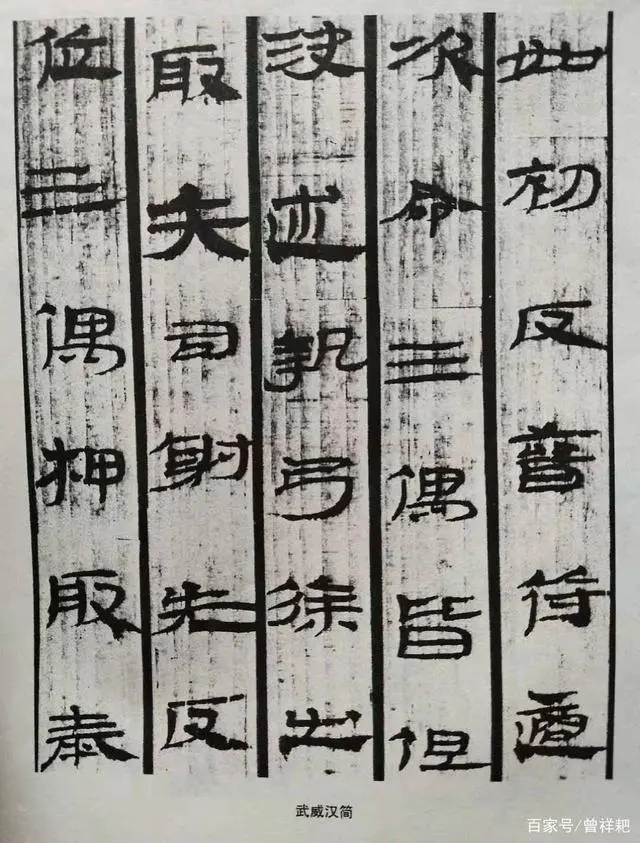 如初反晉適
次命三偶皆但
決述執弓徐出
取矢司射先反
位三偶押取
武威汉简
百家号/曾祥耙